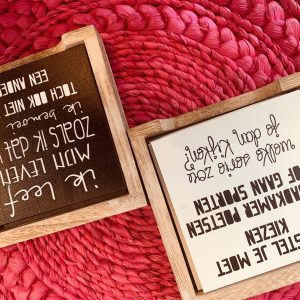 ik leef
MIJN LEVEN
ZOALS IK DAT
ik bemoei
TOCH OOK NIET
EEN ANDER
STEL JE MOET
KIEZEN
BADKAMER POETSEN
OF GAAN SPORTEN
welke serie zou
je dan kijken?